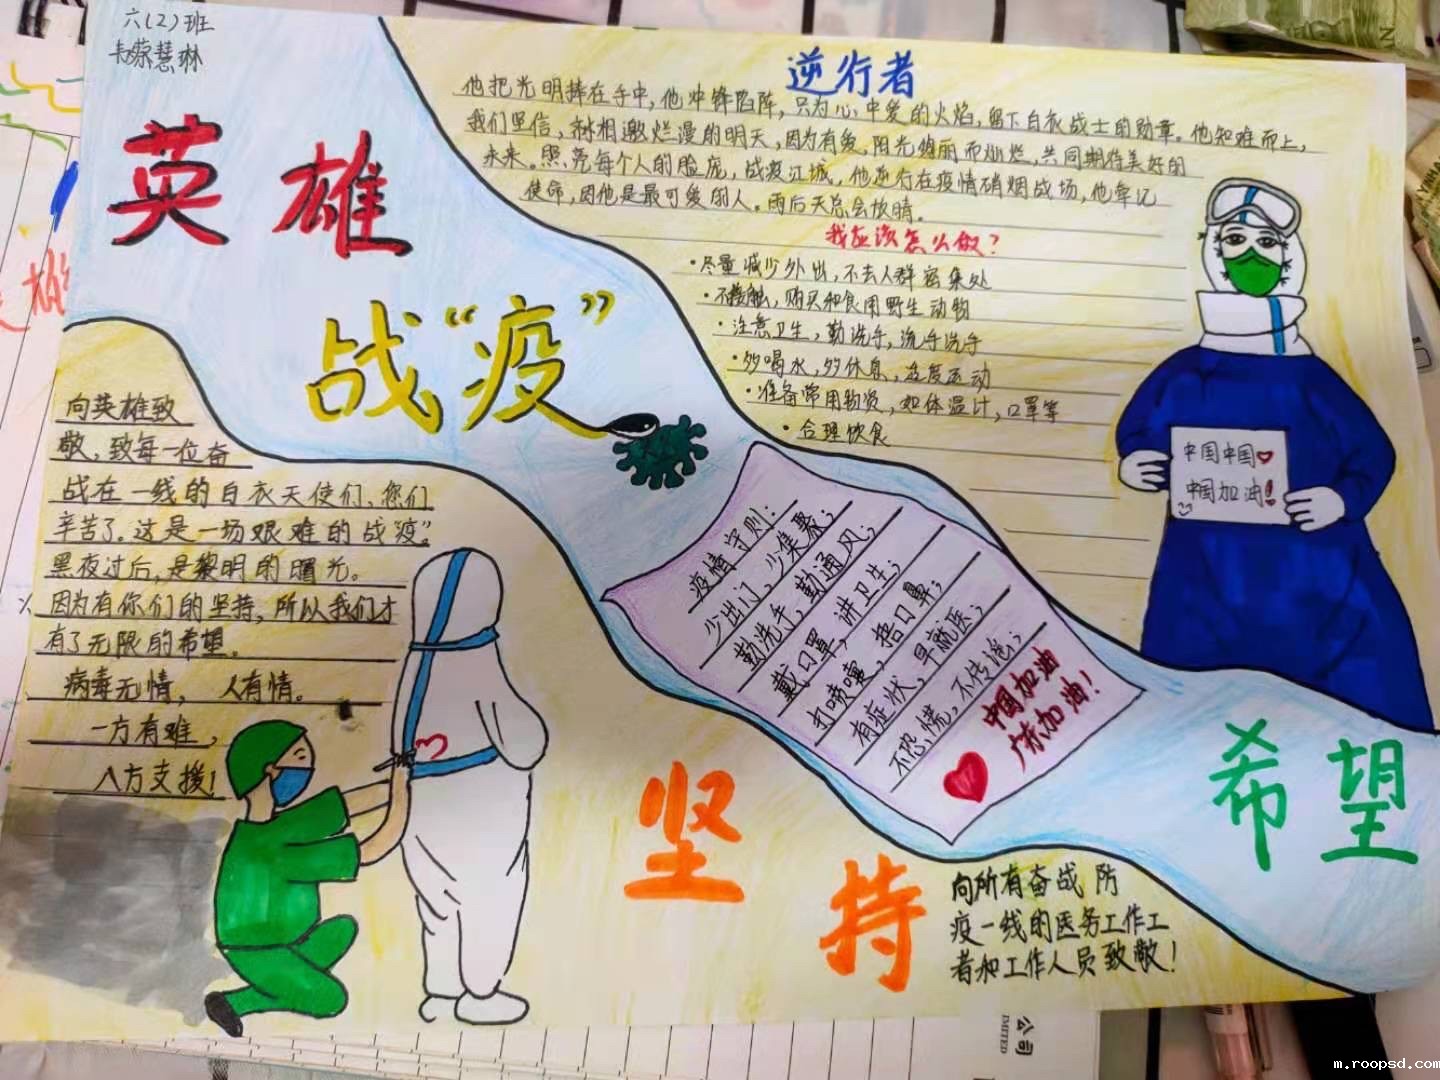 六(2)班
蔡慧琳
英雄
战“疫”
逆行者
他把光明捧在手中,他冲锋陷阵,只为心中爱的火焰,留下白衣战士的勋章。他知难而上,
我们坚信,林相邀烂漫的明天,因为有爱,阳光绚丽而灿烂,共同期待美好的
未来。照亮每个人的脸庞,战疫江城,他逆行在疫情硝烟战场,他牢记
使命,因他是最可爱的人。雨后天总会放晴。
我应该怎么做?
·尽量减少外出,不去人群密集处
·不接触,购买和食用野生动物
·注意卫生,勤洗手,流手洗手
·多喝水,多休息,适度运动
·准备常用物资,如体温计,口罩等
·合理饮食
中国中国
中国加油!
向英雄致
敬,致每一位奋
战在一线的白衣天使们、您们
辛苦了。这是一场艰难的战“疫”。
黑夜过后,是黎明的曙光。
因为有你们的坚持,所以我们才
有了无限的希望。
病毒无情,人有情。
一方有难,
八方支援!
疫情守则:
少出门、少集聚;
勤洗手,勤通风;
戴口罩,讲卫生;
打喷嚏,捂口鼻;
有症状,早就医;
不恐慌,不传谣;
中国加油
广东加油!
坚持
希望
向所有奋战防
疫一线的医务工作工
者和工作人员致敬!
公司
IMITED
m.roopsd.com